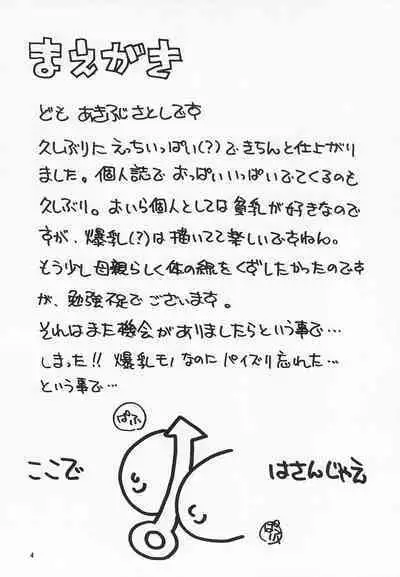 まえがき
ども あきふじさとしです
久しぶりに えっちいっぱい(?)で きちんと仕上がり
ました。個人誌で おっぱいいっぱいでてくるのも
久しぶり。おいら個人としては貧乳が好きなので
すが、爆乳(?)は描いてて楽しいですねん。
もう少し母親らしく体の線をくずしたかったのです
が、勉強不足でございます。
それはまた機会がありましたらという事で…
しまった!! 爆乳モノなのに パイズリ忘れた…
という事で…
ぱふ
ここで
はさんじゃえ
ぱふ
4